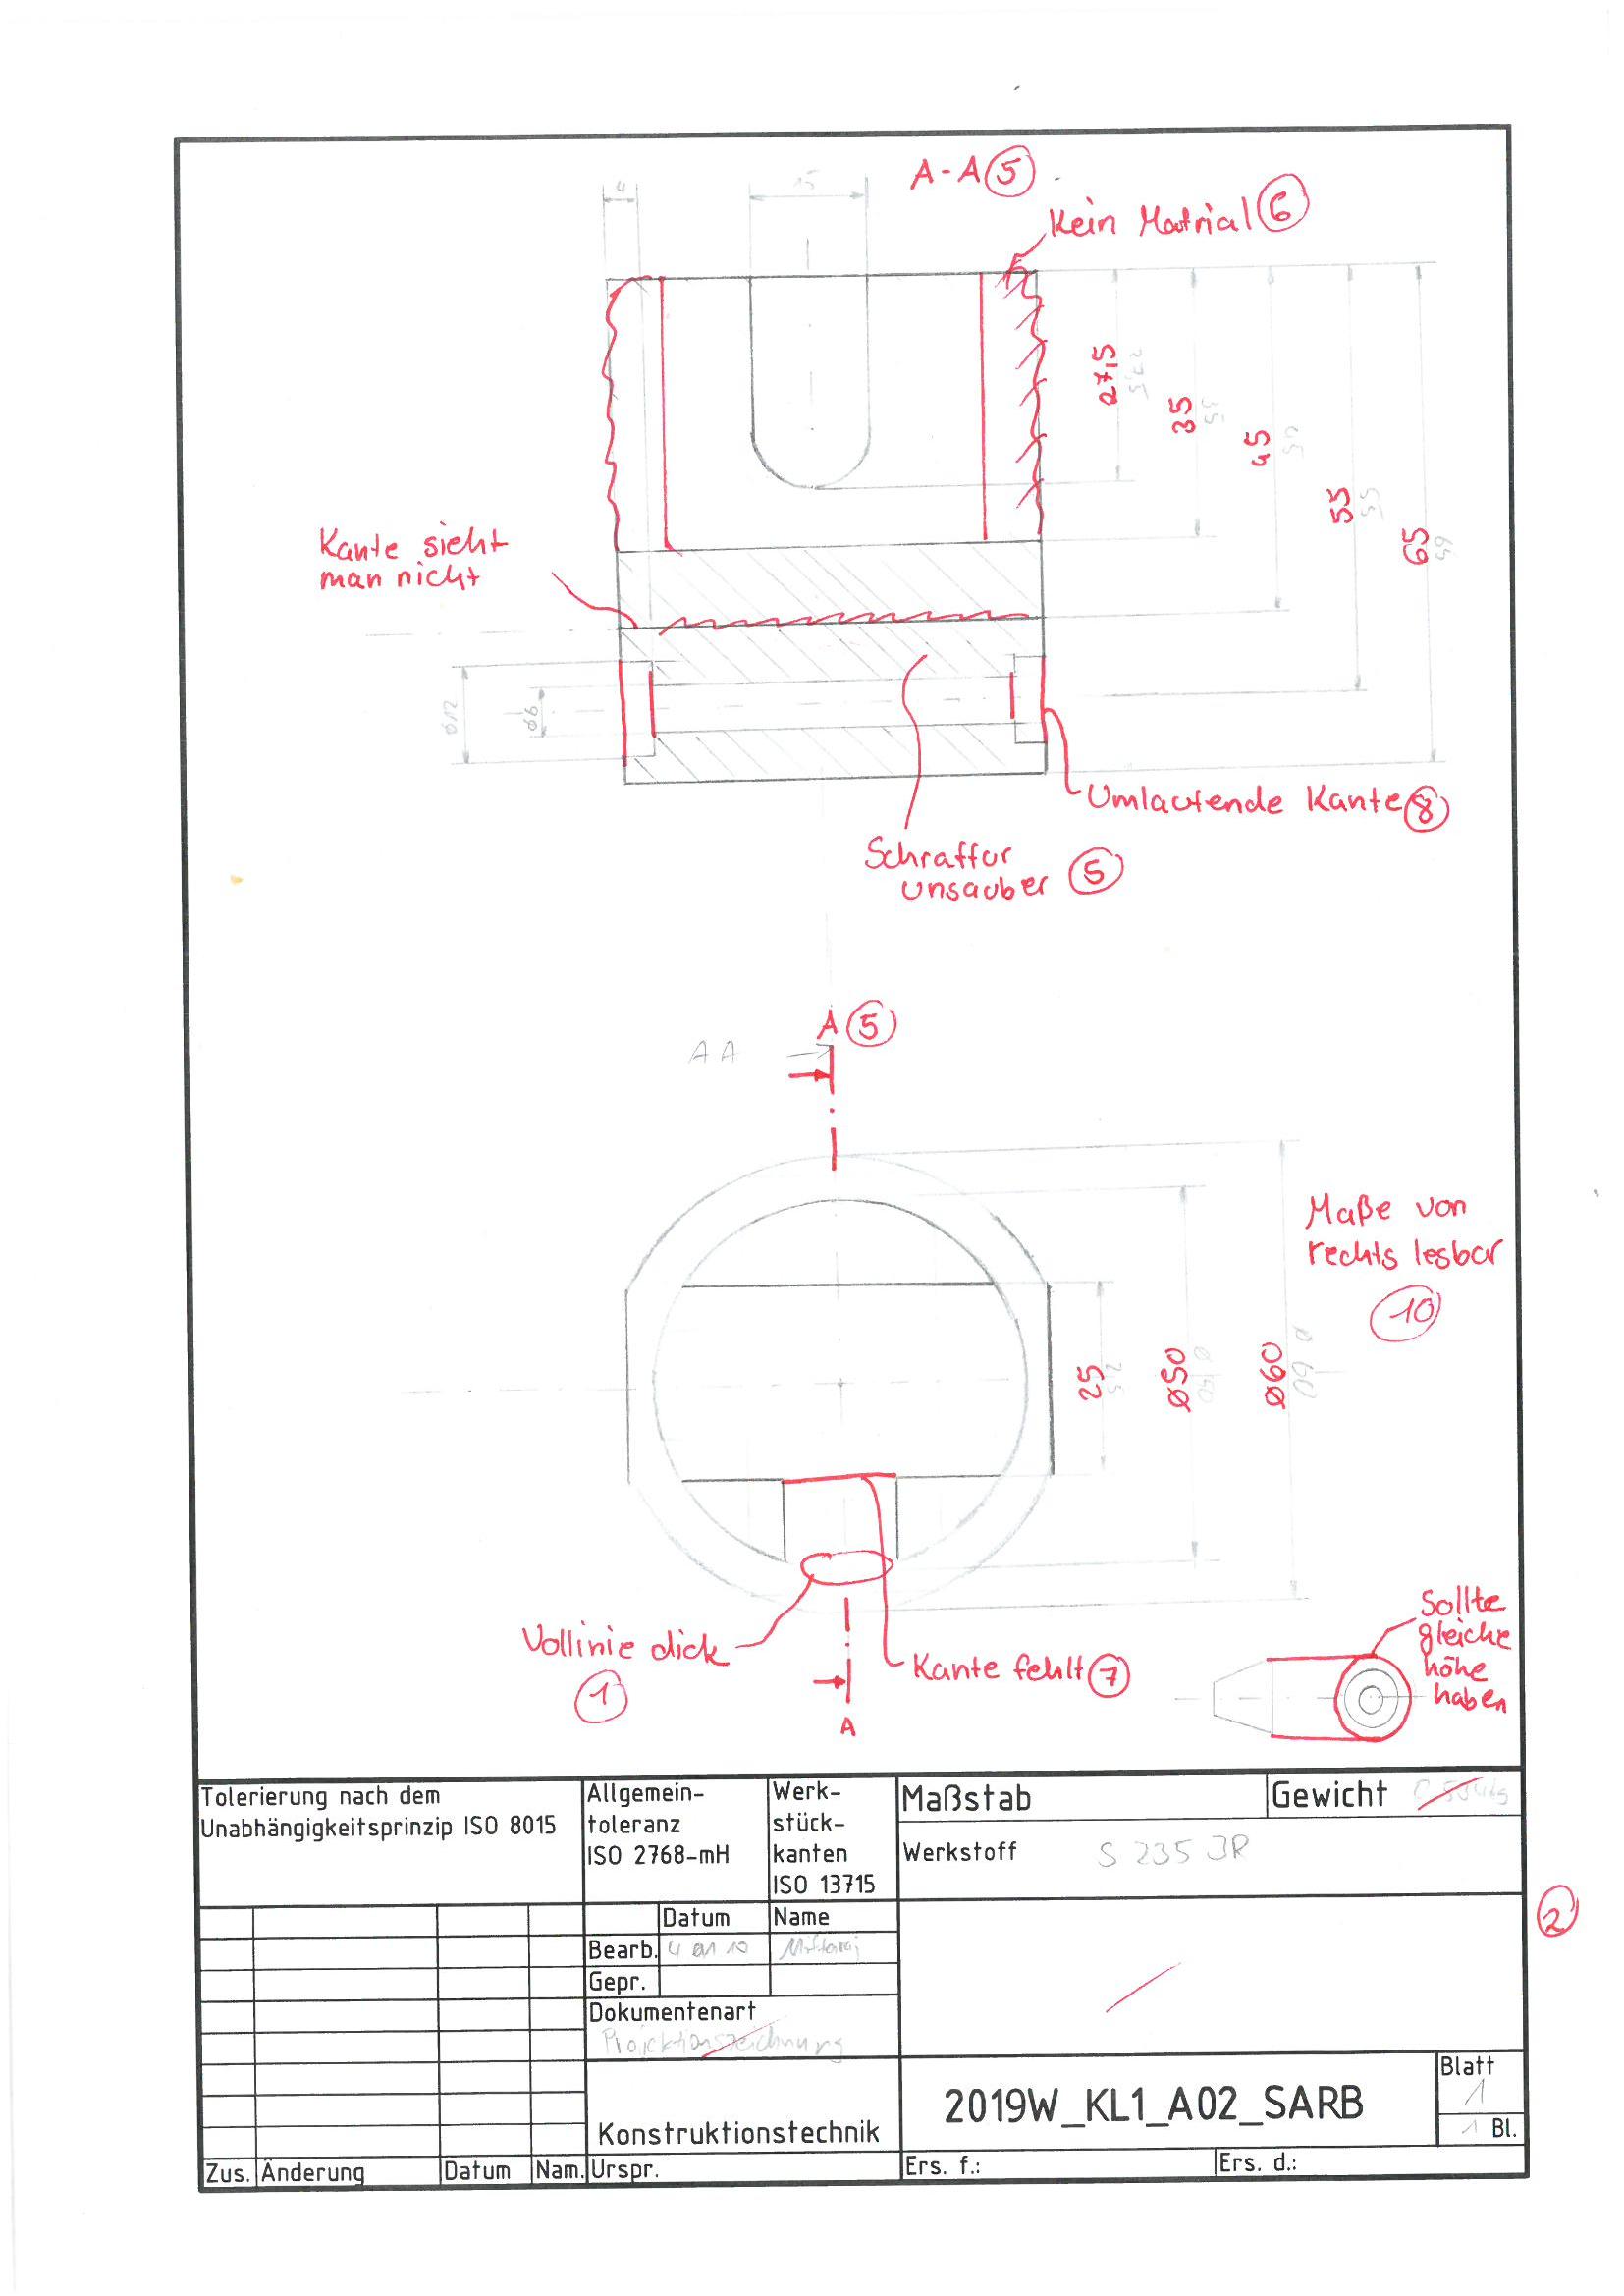 A-A 5
4
15
Kein Matrial 6
27,5
27,5
35
35
45
45
55
55
65
65
Kante sieht
man nicht
ø12
ø6
Umlaufende Kante 8
Schraffur
unsauber 5
A 5
A A
Maße von
rechts lesbar
10
25
25
ø50
ø60
ø 60
Vollinie dick
1
Kante fehlt 7
A
Sollte
gleiche
höhe
haben
Tolerierung nach dem
Unabhängigkeitsprinzip ISO 8015
Allgemein-
toleranz
ISO 2768-mH
Werk-
stück-
kanten
ISO 13715
Maßstab
Gewicht
Werkstoff S 235 JR
2
Datum
Name
Bearb.
Gepr.
Dokumentenart
Projektionszeichnung
Konstruktionstechnik
2019W_KL1_A02_SARB
Blatt
1
1 Bl.
Zus. Änderung Datum Nam. Urspr. Ers. f.: Ers. d.: